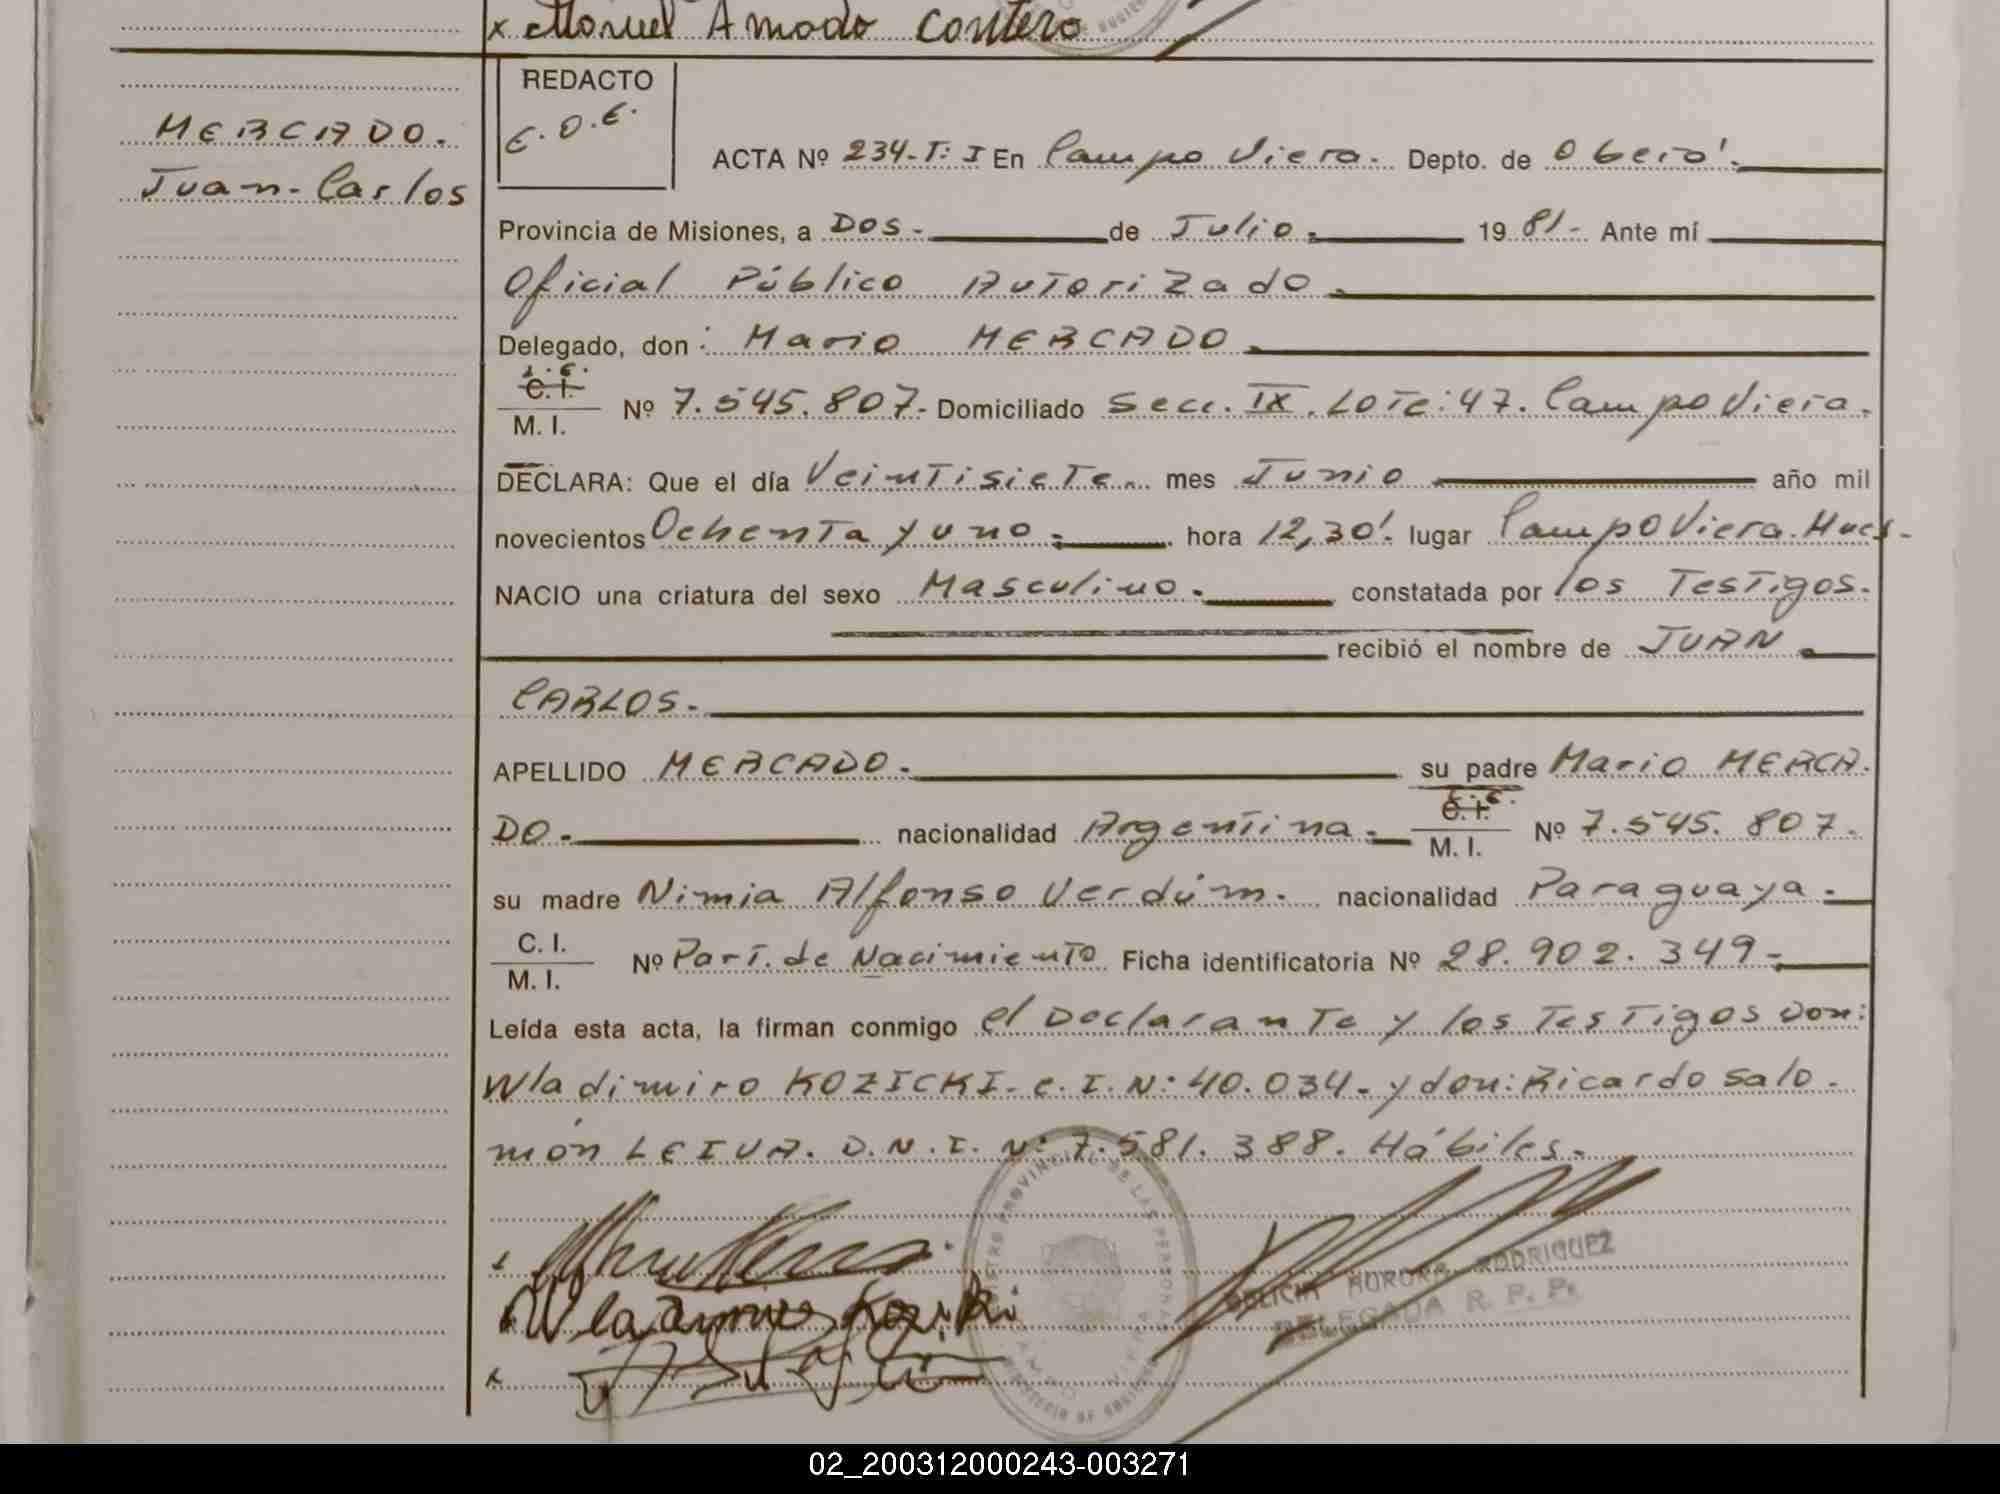 x Manuel Amado Contero
REDACTO
E.O.E.
MERCADO.
Juan-Carlos
ACTA Nº 234-T: I En Campo Viera. Depto. de Oberá.
Provincia de Misiones, a Dos.- de Julio. 1981.- Ante mí
Oficial Público Autorizado.
Delegado, don: Mario MERCADO.
L.E.
C.I.
M. I.
Nº 7.545.807.- Domiciliado Secc. IX. Lote: 47. Campo Viera.
DECLARA: Que el día Veintisiete. mes Junio año mil
novecientos Ochenta y uno. hora 12,30'. lugar Campo Viera.
NACIO una criatura del sexo Masculino. constatada por los Testigos.
recibió el nombre de JUAN
CARLOS.-
APELLIDO MERCADO.- su padre Mario MERCA-
DO.- nacionalidad Argentina.-
L.E.
C.I.
M. I.
Nº 7.545.807.
su madre Nimia Alfonso Verdúm. nacionalidad Paraguaya.-
C. I.
M. I.
Nº Part. de Nacimiento Ficha identificatoria Nº 28.902.349.-
Leída esta acta, la firman conmigo el Declarante y los Testigos Don:
Wladimiro KOZICKI- C.I.N: 40.034.- y don: Ricardo Salo-
món LEIVA. D.N.I. Nº 7.581.388. Hábiles.-
REGISTRO PROVINCIAL DE LAS PERSONAS
CAMPO VIERA
Wladimiro Kozicki
DELICIA AURORA RODRIGUEZ
DELEGADA R. P. P.
02_200312000243-003271